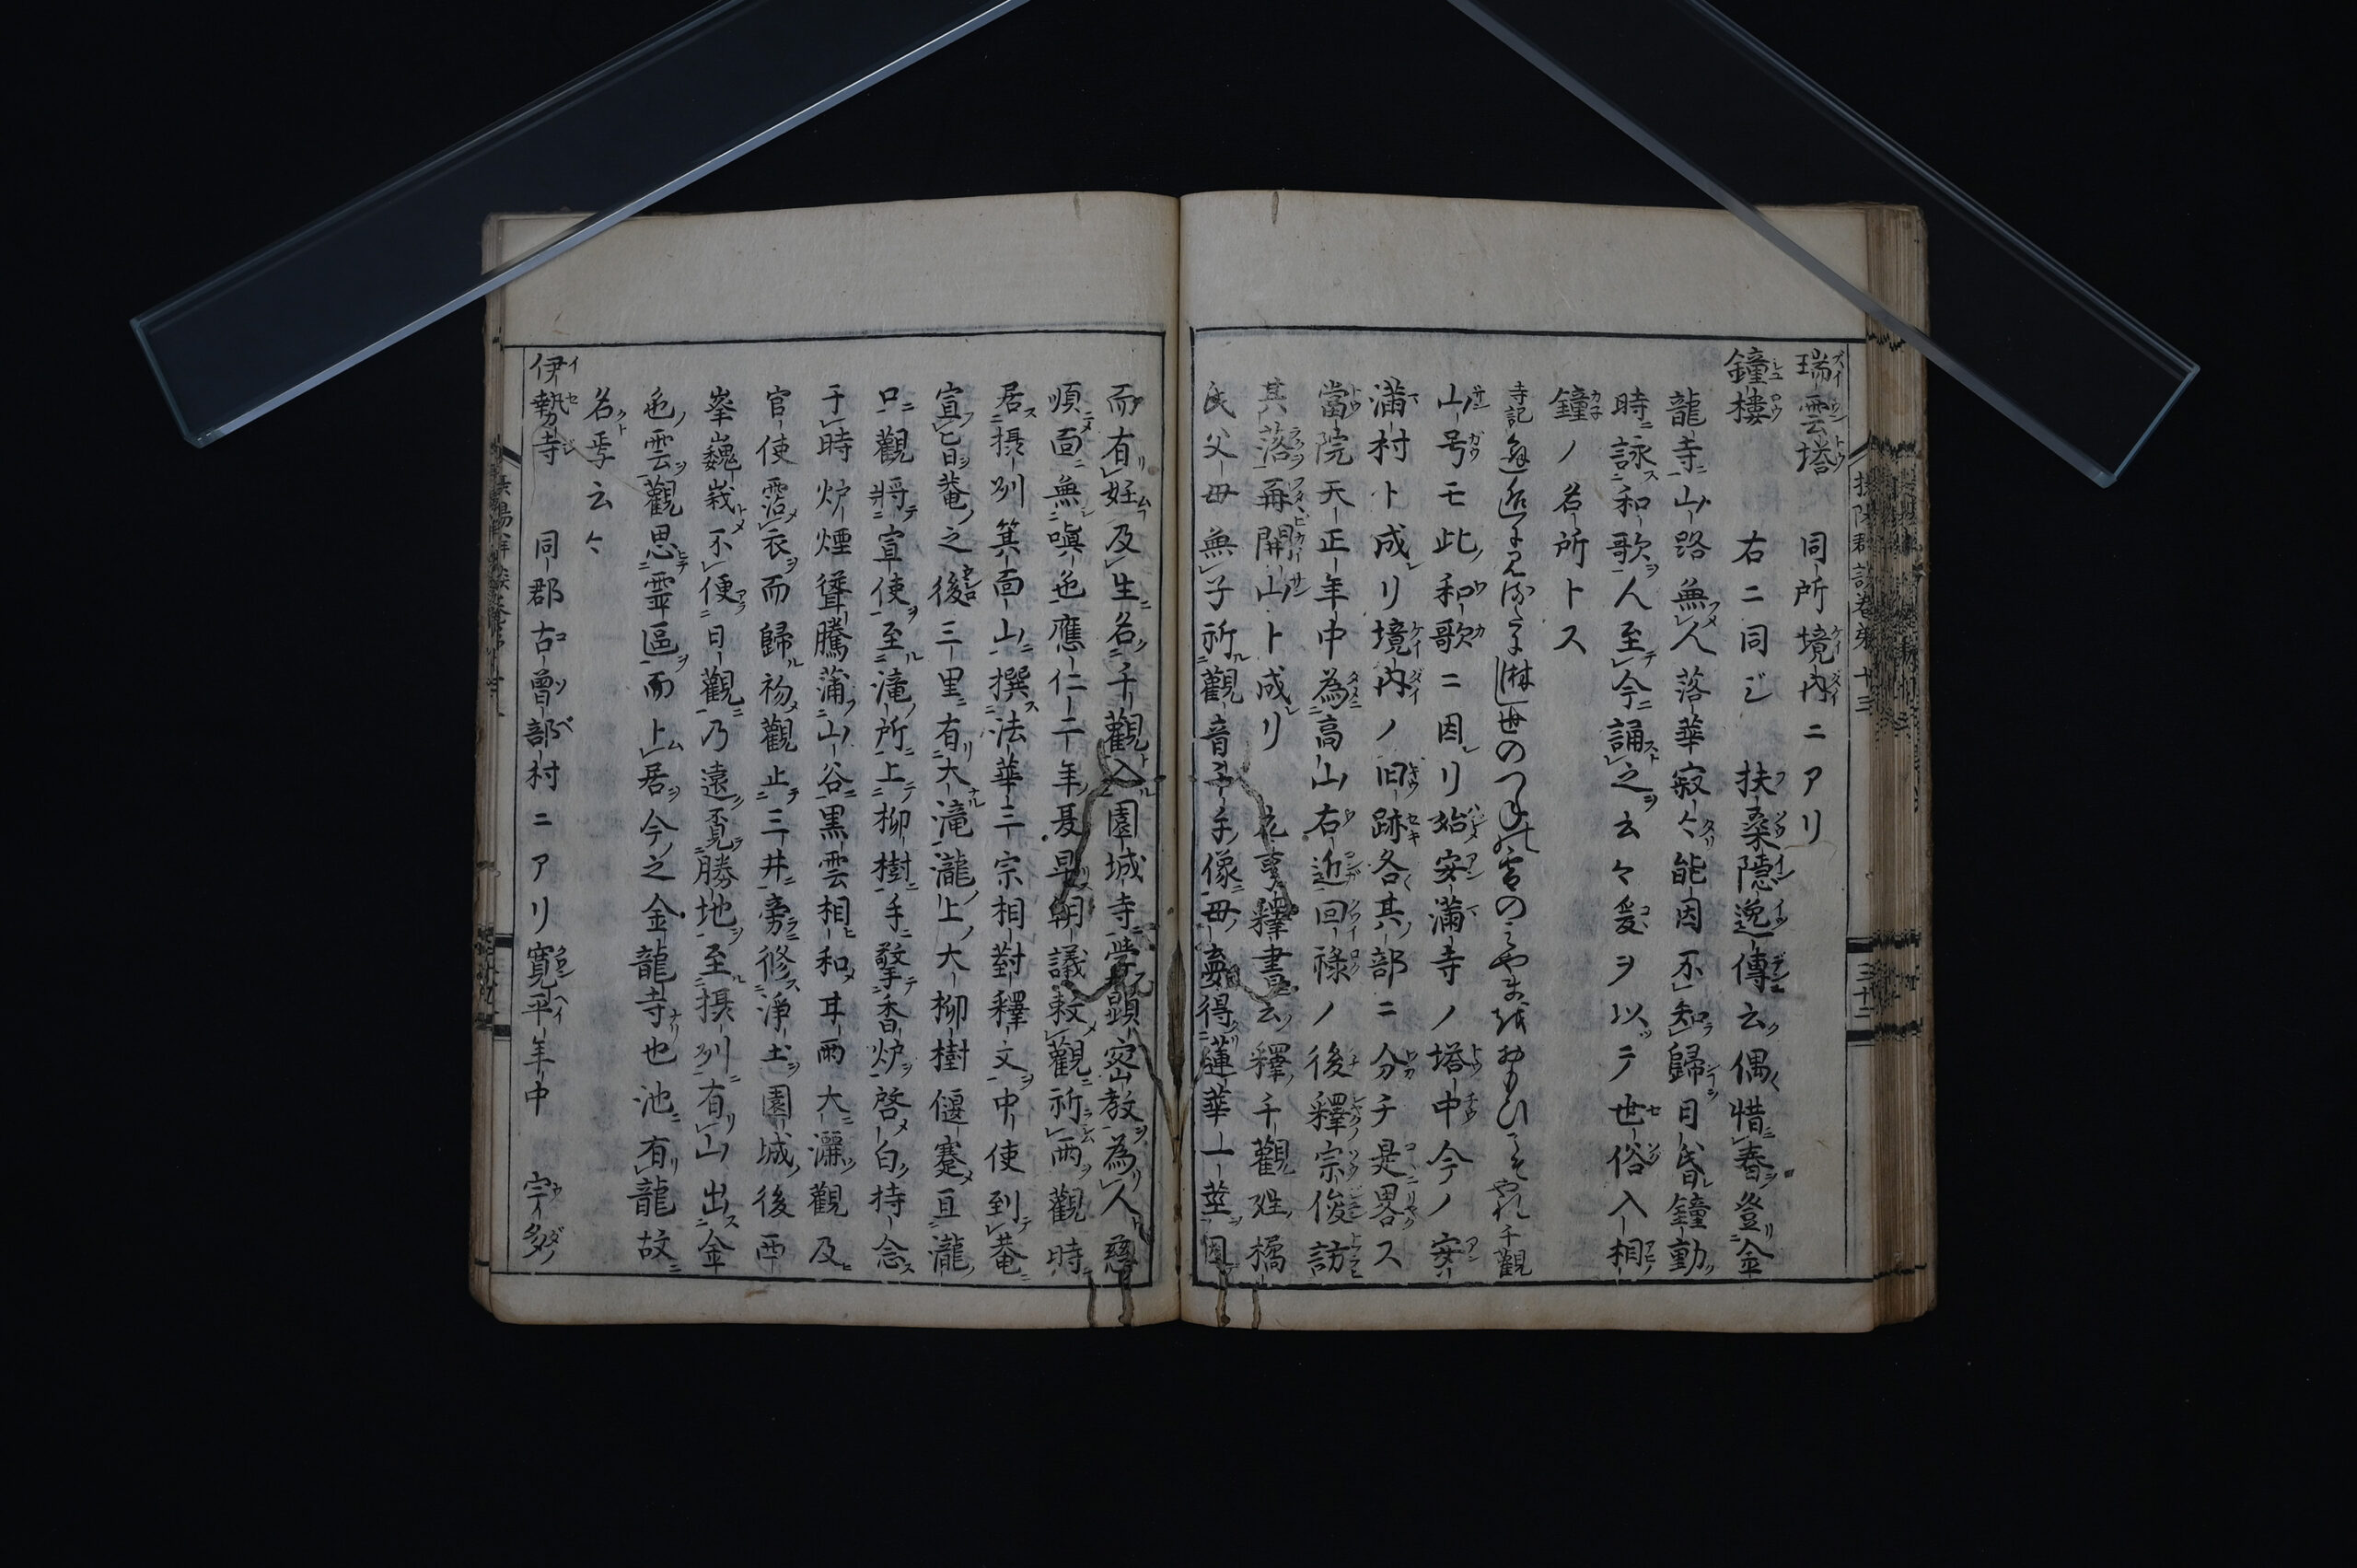 瑞雲塔　同所境内ニアリ
鐘樓　右ニ同ジ　扶桑隱逸傳云偶惜春登金
龍寺山路無人落華寂々能因不知歸日昏鐘動
時詠和歌人至今誦之云々爰ヲ以テ世俗入相
鐘ノ名所トス
寺記 淋世のつねれ宮の 千觀
山号モ此和歌ニ因リ始安滿寺ノ塔中今ノ安
滿村ト成リ境内ノ旧跡各其部ニ分チ是畧ス
當院天正年中為高山右近回祿ノ後釋宗俊訪
其落再開山ト成リ 元亨釋書云釋千觀姓橘
氏父母無子祈觀音千手像母夢得蓮華一莖因
而有妊及生名千觀入園城寺學顕密教為人慈
順面無嗔色應仁二年夏旱朝議敕觀祈雨觀時
居摂州箕面山撰法華三宗相對釋文中使到菴
宣旨菴之後三里有大滝瀧上大柳樹偃蹇亘瀧
口觀將宣使至滝所上柳樹手擎香炉啓白持念
于時炉煙聳騰蒲山谷黒雲相和耳雨大灑觀及
官使霑衣而歸初觀止三井旁修淨土園城後西
峯巍峩不便日觀乃遠覓勝地至摂州有山出金
色雲觀思霊區而卜居今之金龍寺也池有龍故
名焉云々
伊勢寺　同郡古曽部村ニアリ寛平年中　宇多